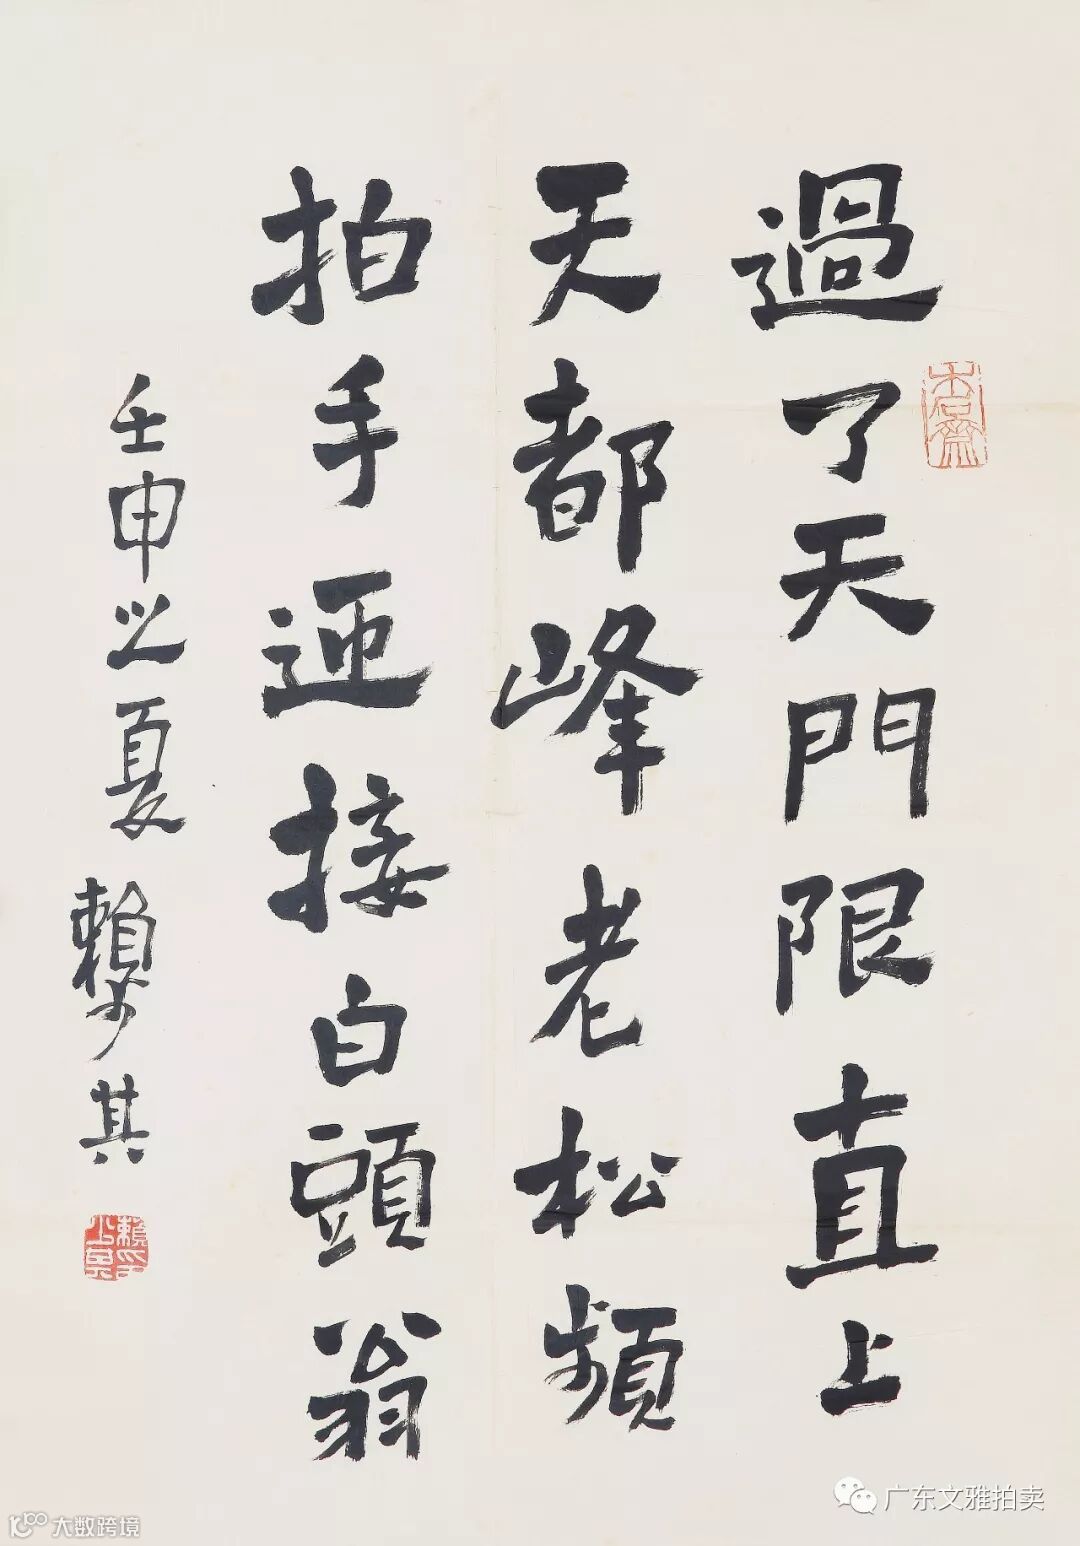 過了天門限直上
天都峰老松頻
拍手迎接白頭翁
壬申之夏 賴少其
木石齋
賴少其印
广东文雅拍卖
大数跨境